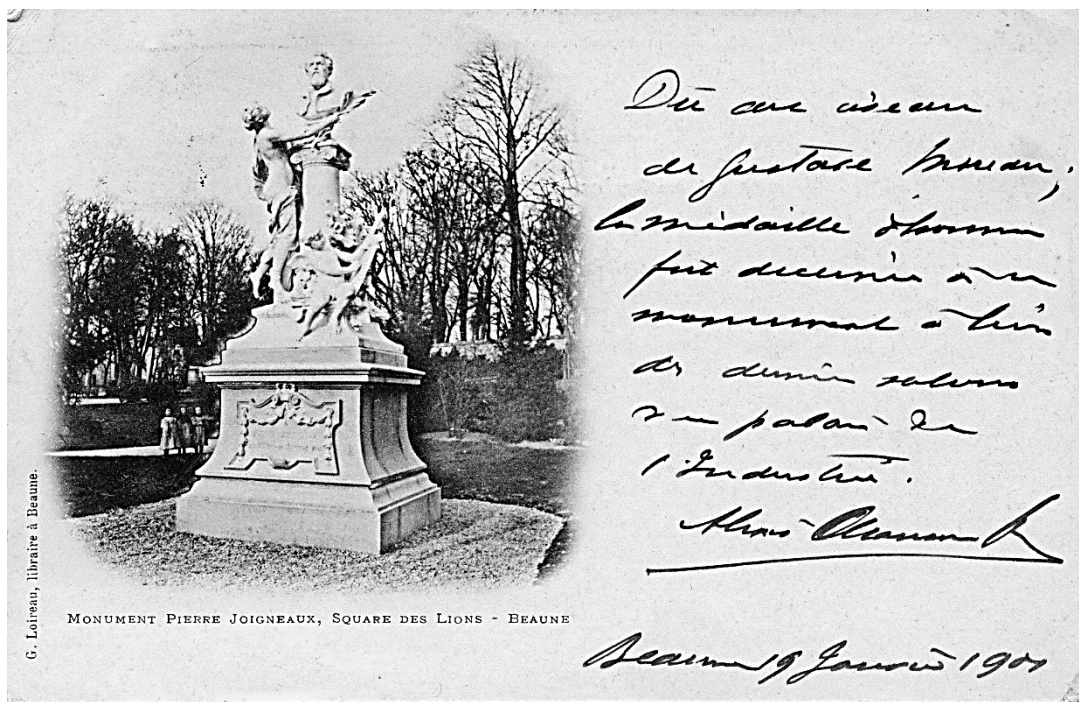 G. Loireau, libraire à Beaune.
MONUMENT PIERRE JOIGNEAUX, SQUARE DES LIONS - BEAUNE
Dû au ciseau
de Gustave Moreau,
la médaille d'honneur
fut décernée à ce
monument à l'un
des derniers salons
du palais de
l'Industrie.
Alexis
Beaune 19 Janvier 1901